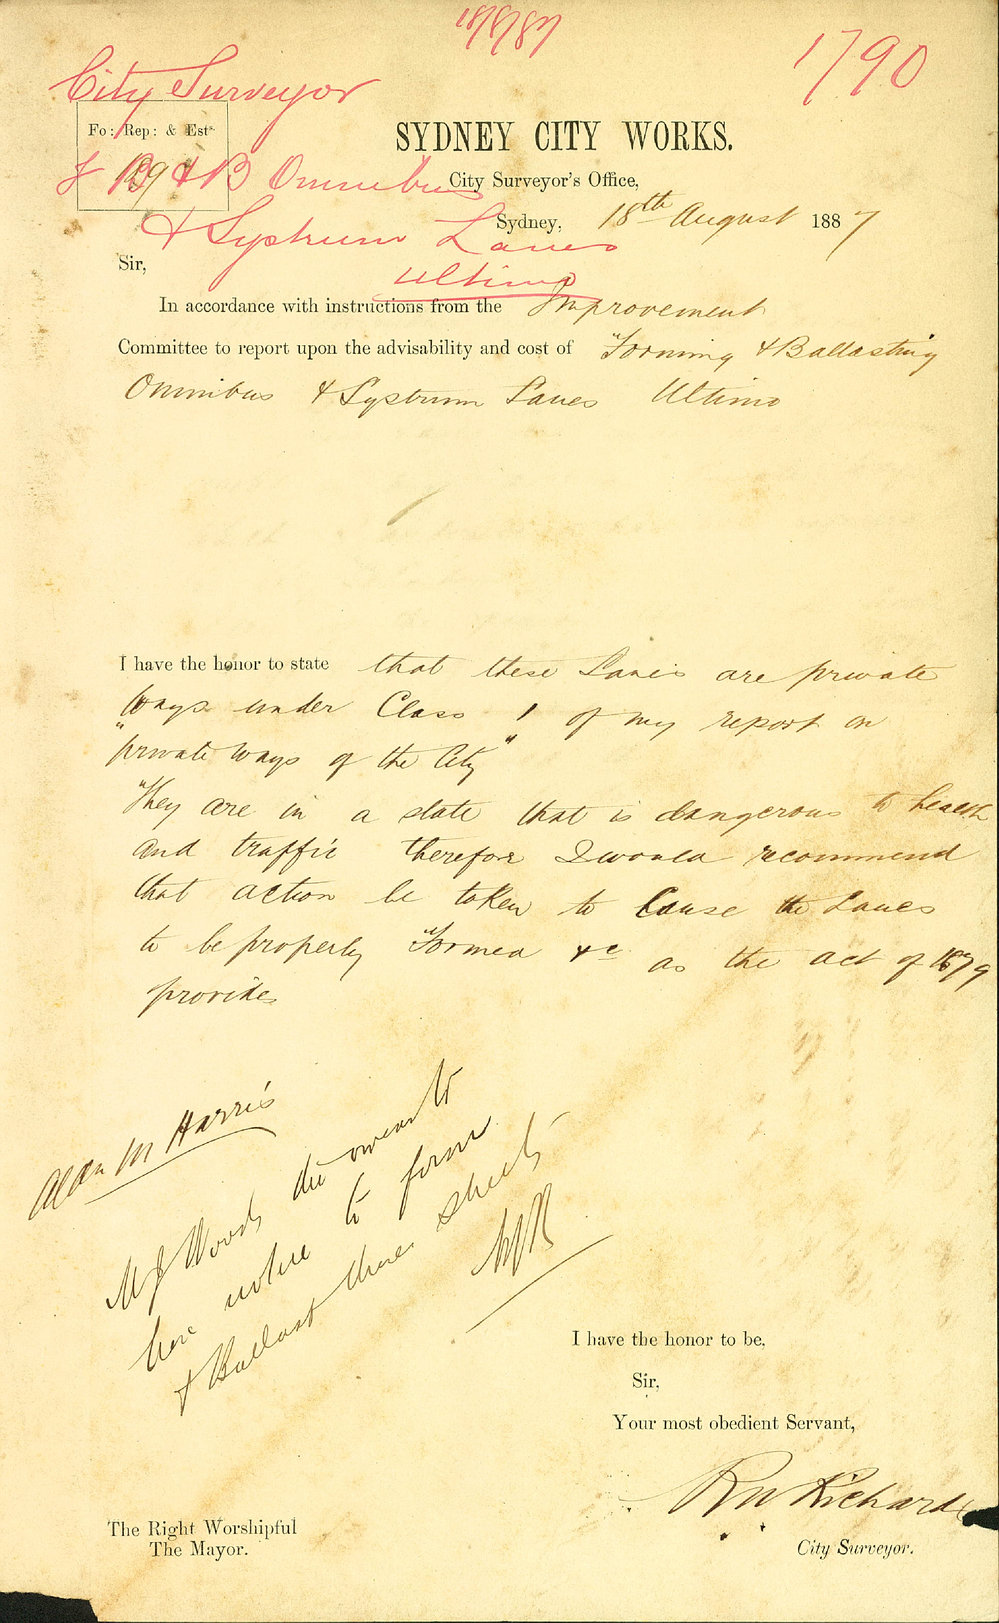 18/8/87
1790
City Surveyor
Fo: Rep: & Est
F B & B Omnibus
& Systrum Lanes
Ultimo
SYDNEY CITY WORKS.
City Surveyor's Office,
Sydney, 18th August 1887
Sir,
In accordance with instructions from the Improvement
Committee to report upon the advisability and cost of Forming & Ballasting
Omnibus & Systrum Lanes Ultimo
I have the honor to state that these Lanes are private
ways under Class 1 of my report on
"private ways of the City"
They are in a state that is dangerous to health
and traffic therefore I would recommend
that action be taken to Cause the Lanes
to be properly Formed &c as the act of 1879
provides
Alan M Harris
Mr Woods the owner to
have notice to form
& Ballast these streets
I have the honor to be,
Sir,
Your most obedient Servant,
R W Richards
City Surveyor.
The Right Worshipful
The Mayor.